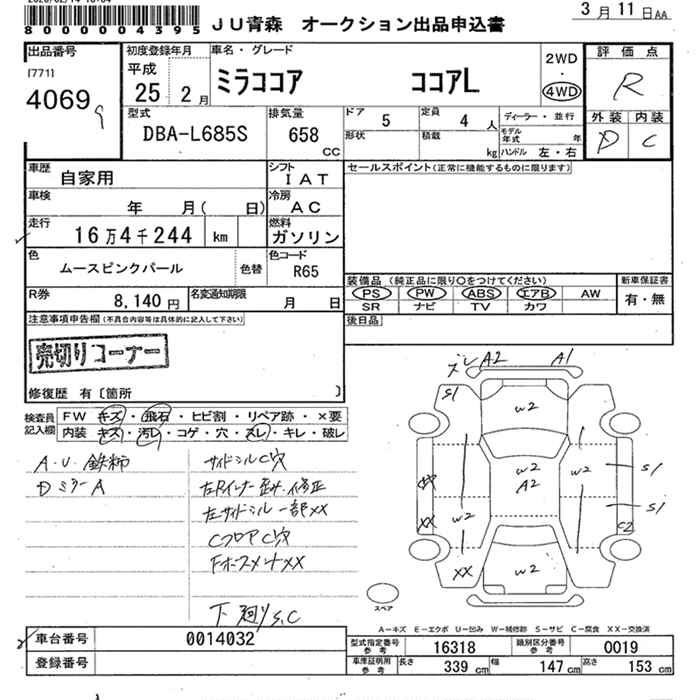 8 0 0 0 0 0 4 3 9 5
JU青森 オークション出品申込書
3月11日AA
出品番号
[771]
4069
初度登録年月
平成
25 2月
車名・グレード
ミラココア ココアL
2WD
・
4WD
評価点
R
外装 内装
D C
型式
DBA-L685S
排気量
658
CC
ドア
5
定員
4 人
形状
積載
kg
ディーラー・並行
モデル年式 年
ハンドル 左・右
車歴
自家用
シフト
IAT
セールスポイント(正常に機能するものに限ります)
車検
年 月( 日)
冷房
AC
走行
16万4千244 km
燃料
ガソリン
色
ムースピンクパール
色替
色コード
R65
装備品(純正品に限り○をつけてください)
新車保証書
PS PW ABS エアB AW
SR ナビ TV カワ
有・無
R券
8,140円
名変通知期限
月 日
後日品
注意事項申告欄(不具合内容等は具体的に記入して下さい)
売切りコーナー
修復歴 有〔箇所 〕
検査員記入欄
FW キズ・飛石・ヒビ割・リペア跡・×要
内装 キズ・汚レ・コゲ・穴・スレ・キレ・破レ
A.U.鉄柿
DミラーA
サイドシルC穴
左Rインナー歪み.修正
左サイドシル一部XX
CフロアC穴
FホースメントXX
下廻りS,C
ズレ A2 A1
S1
W2
W2
A2
W2
S1
S1
XX
W2
C2
XX
W2
スペア
A－キズ E－エクボ U－凹み W－補修跡 S－サビ C－腐食 XX－交換済
車台番号
0014032
登録番号
型式指定番号
参考
16318
類別区分番号
参考
0019
車庫証明用
参考
長さ
339 cm
幅
147 cm
高さ
153 cm